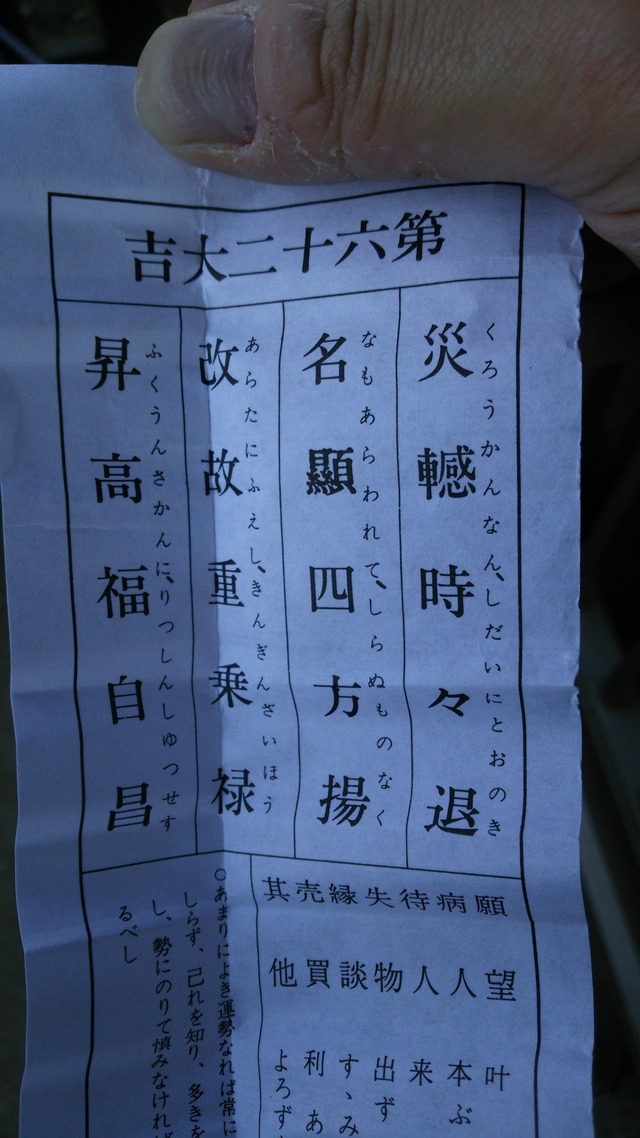 第六十二大吉
災轗時々退
くろうかんなん、しだいにとおのき
名顯四方揚
なもあらわれて、しらぬものなく
改故重乗禄
あらたにふえし、きんぎんざいほう
昇高福自昌
ふくうんさかんに、りつしんしゆつせす
願望 叶
病人 本ぶ
待人 来
失物 出ず
縁談 すゝみ
売買 利あ
其他 よろず
○あまりによき運勢なれば常に
しらず、己れを知り、多きを
し、勢にのりて慎みなければ
るべし